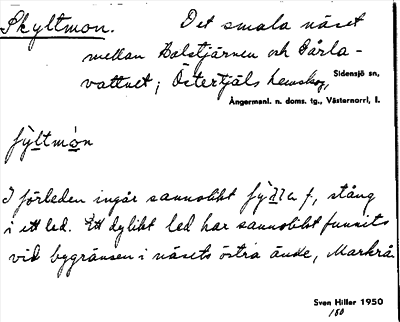 Skyltmon. Det smala näset
mellan Holstjärnen och Pärla-
vattnet; Östertjäls hemskog, Sidensjö sn,
Ångermanl. n. doms. tg., Västernorrl. l.
I förleden ingår sannolikt f, stång
i ett led. Ett dylikt led har sannolikt funnits
vid bygränsen i näsets östra ände, Markrå.
Sven Hiller 1950
150